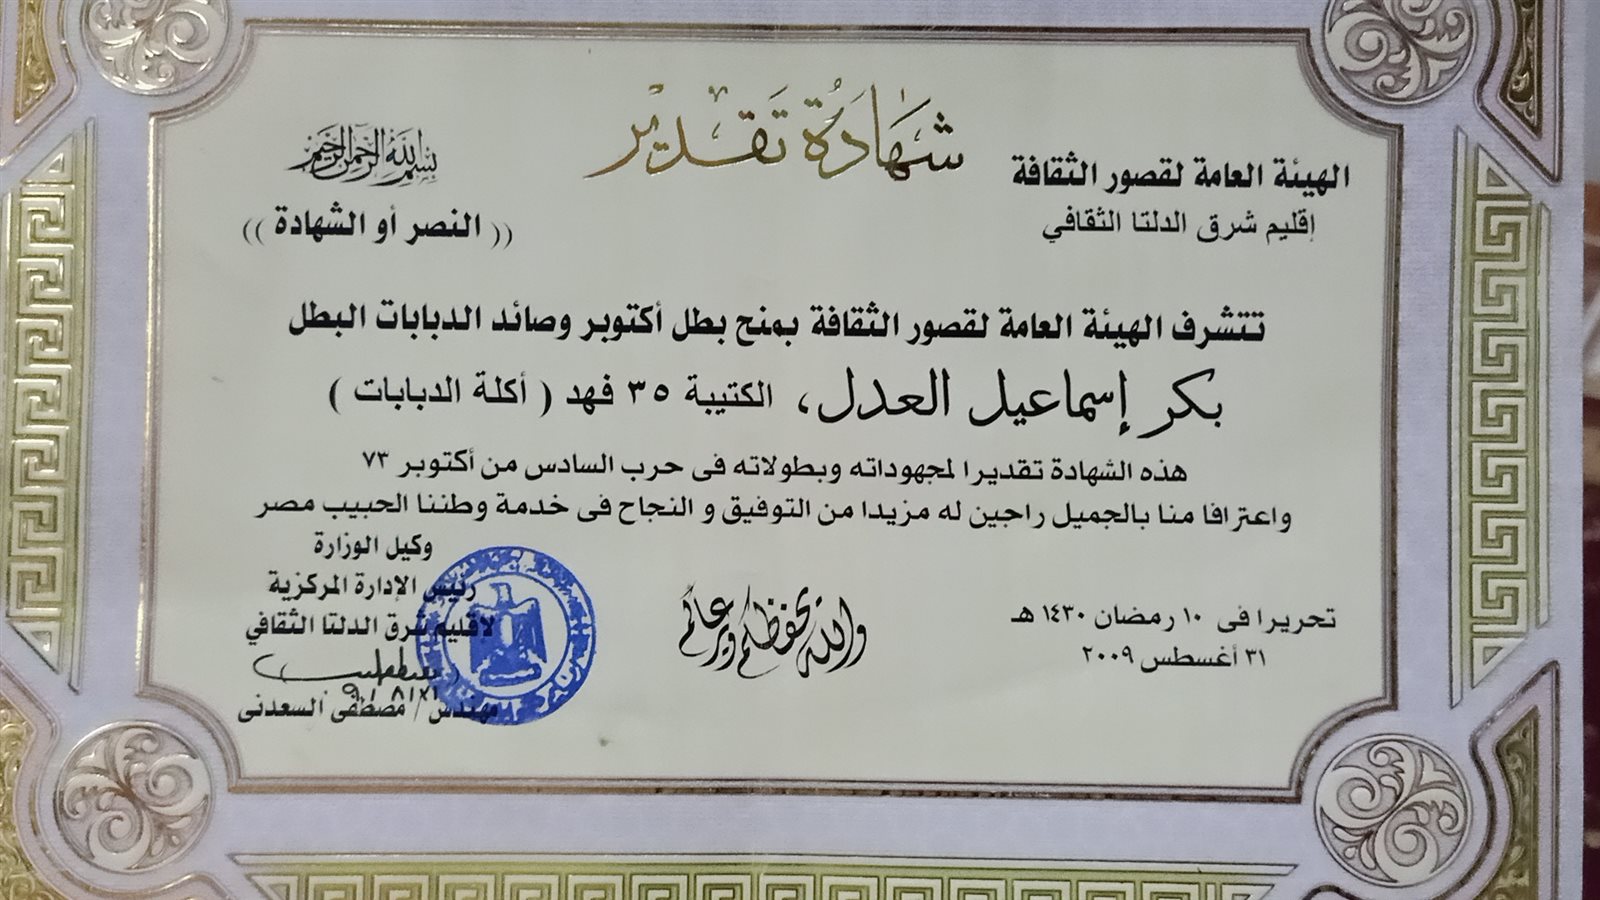 شهادة تقدير
الهيئة العامة لقصور الثقافة
إقليم شرق الدلتا الثقافي
بسم الله الرحمن الرحيم
(( النصر أو الشهادة ))
تتشرف الهيئة العامة لقصور الثقافة بمنح بطل أكتوبر وصائد الدبابات البطل
بكر إسماعيل العدل، الكتيبة ٣٥ فهد ( أكلة الدبابات )
هذه الشهادة تقديرا لمجهوداته وبطولاته فى حرب السادس من أكتوبر ٧٣
واعترافا منا بالجميل راجين له مزيدا من التوفيق و النجاح فى خدمة وطننا الحبيب مصر
تحريرا فى ١٠ رمضان ١٤٣٠ هـ
٣١ أغسطس ٢٠٠٩
والله يحفظكم ويرعاكم
وكيل الوزارة
رئيس الإدارة المركزية
لاقليم شرق الدلتا الثقافي
مهندس / مصطفى السعدنى